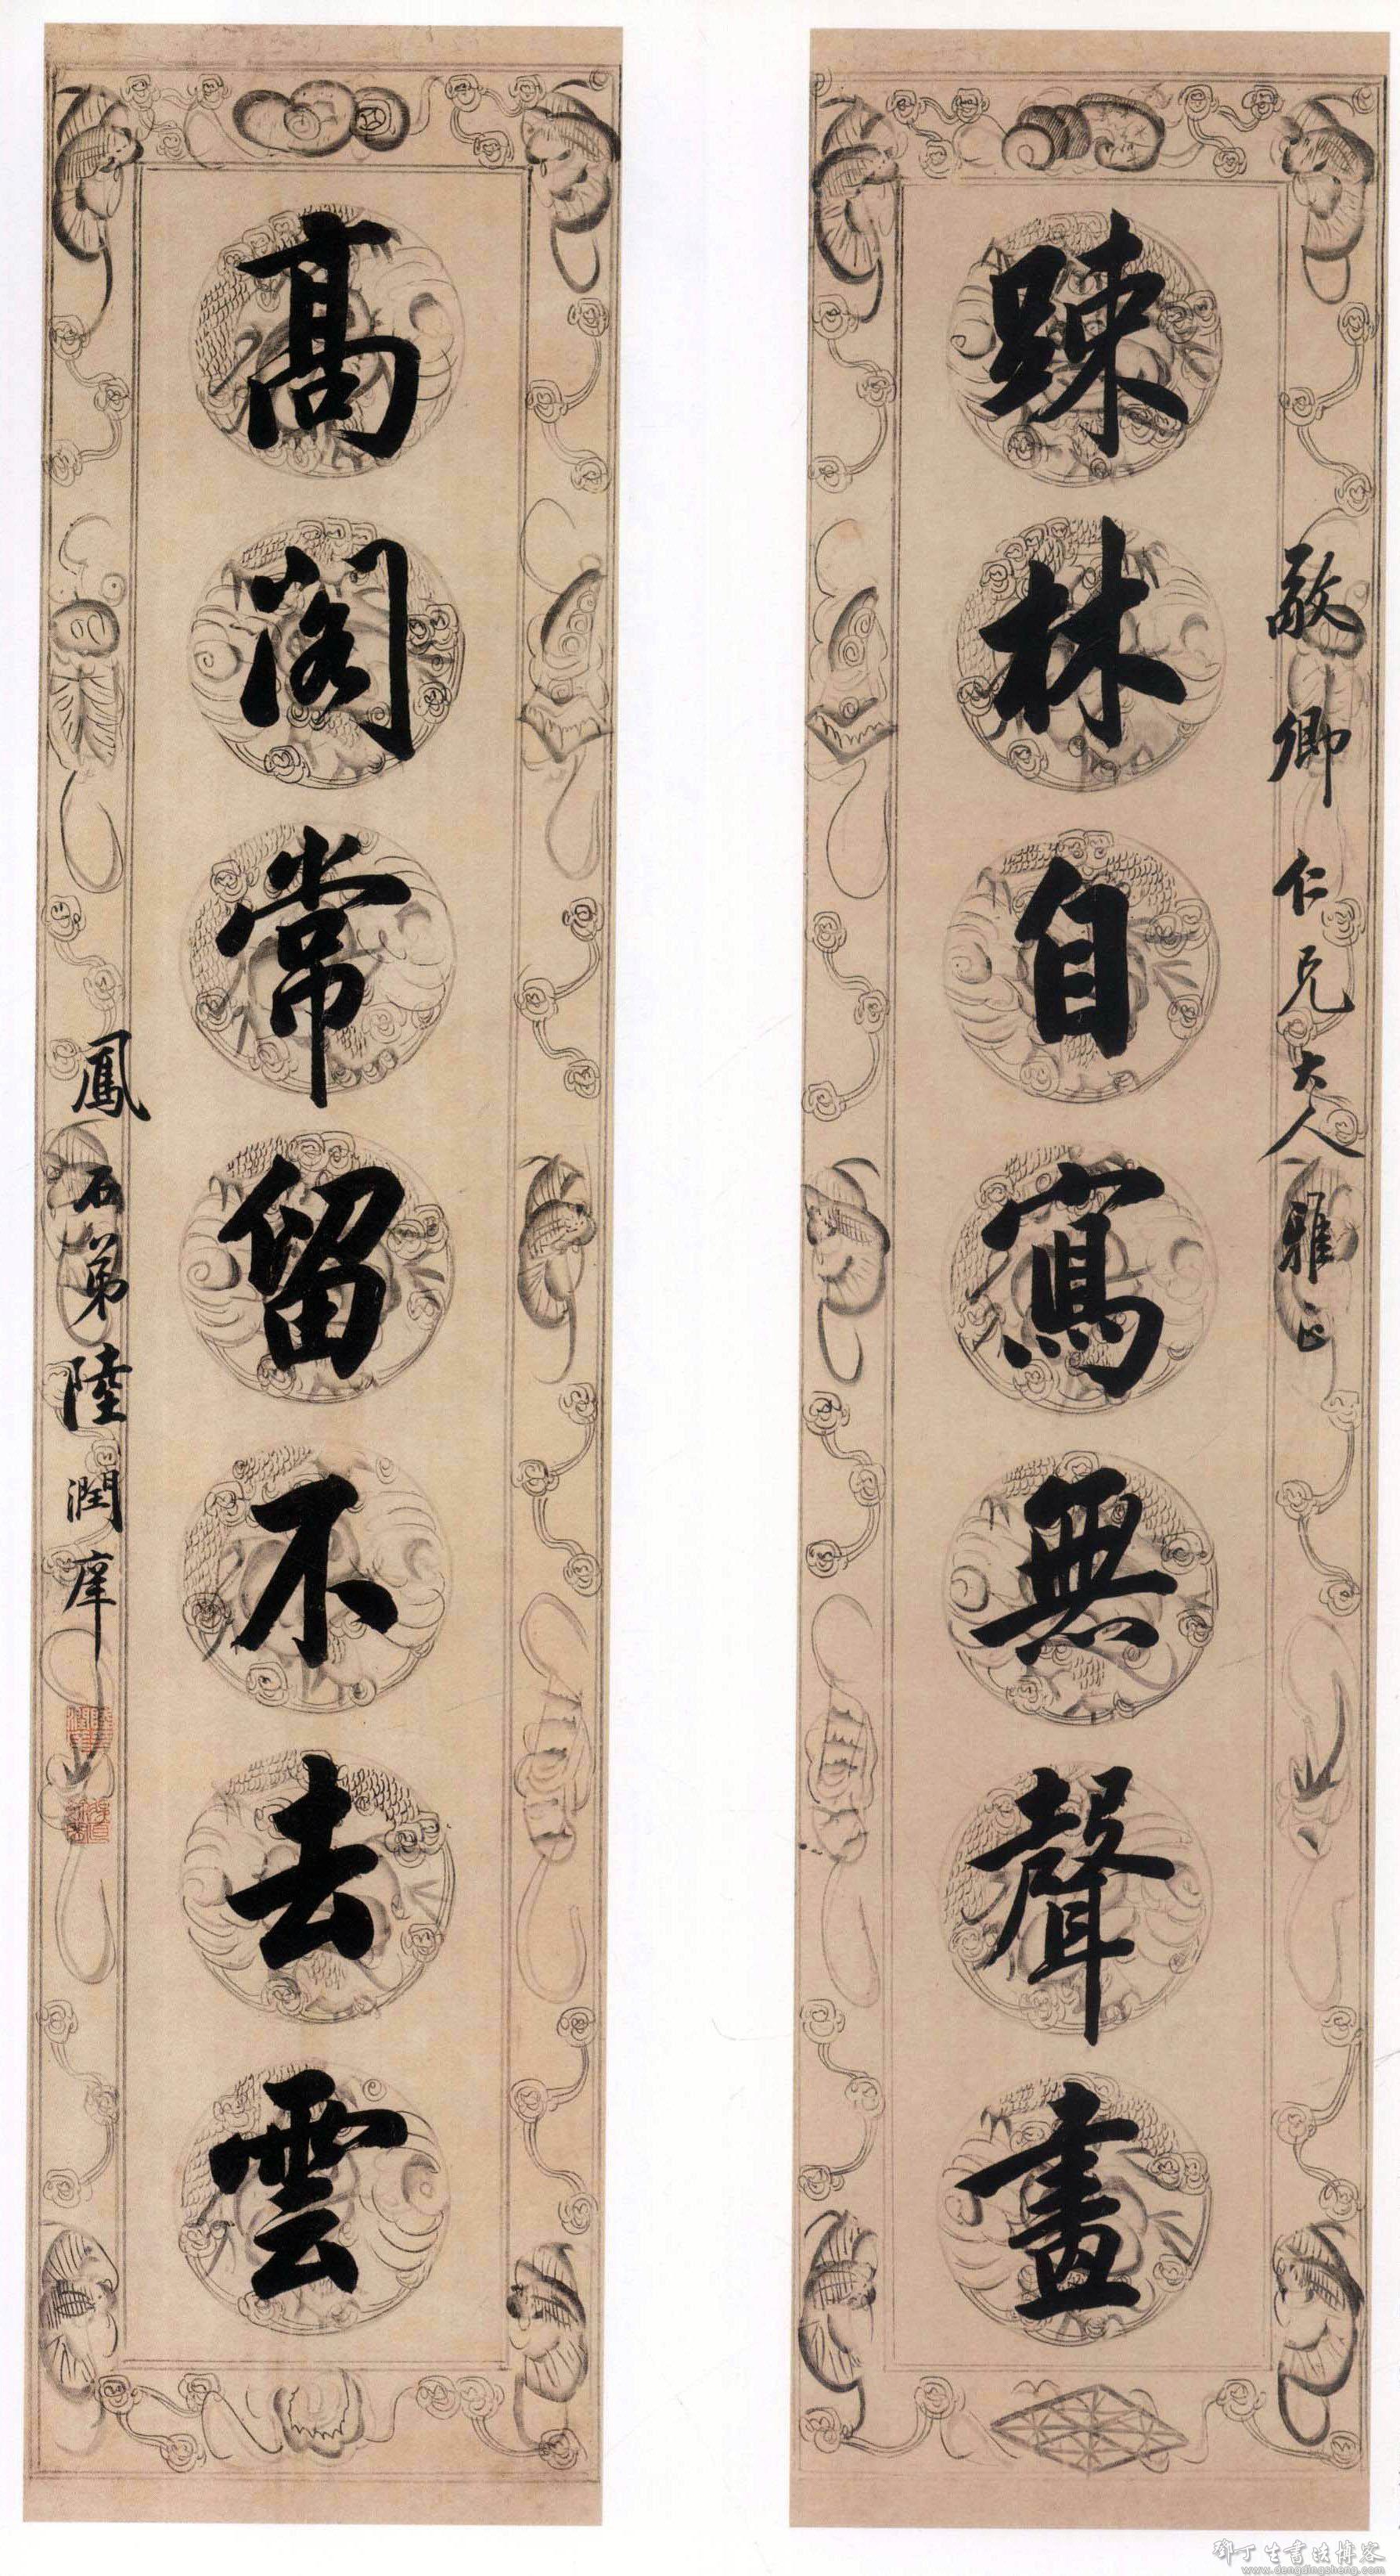 敬卿仁兄大人雅正
踈林自寫無聲畫
髙閣常留不去雲
鳳石弟陸潤庠
鄧丁生書法博客
www.dengdingsheng.com